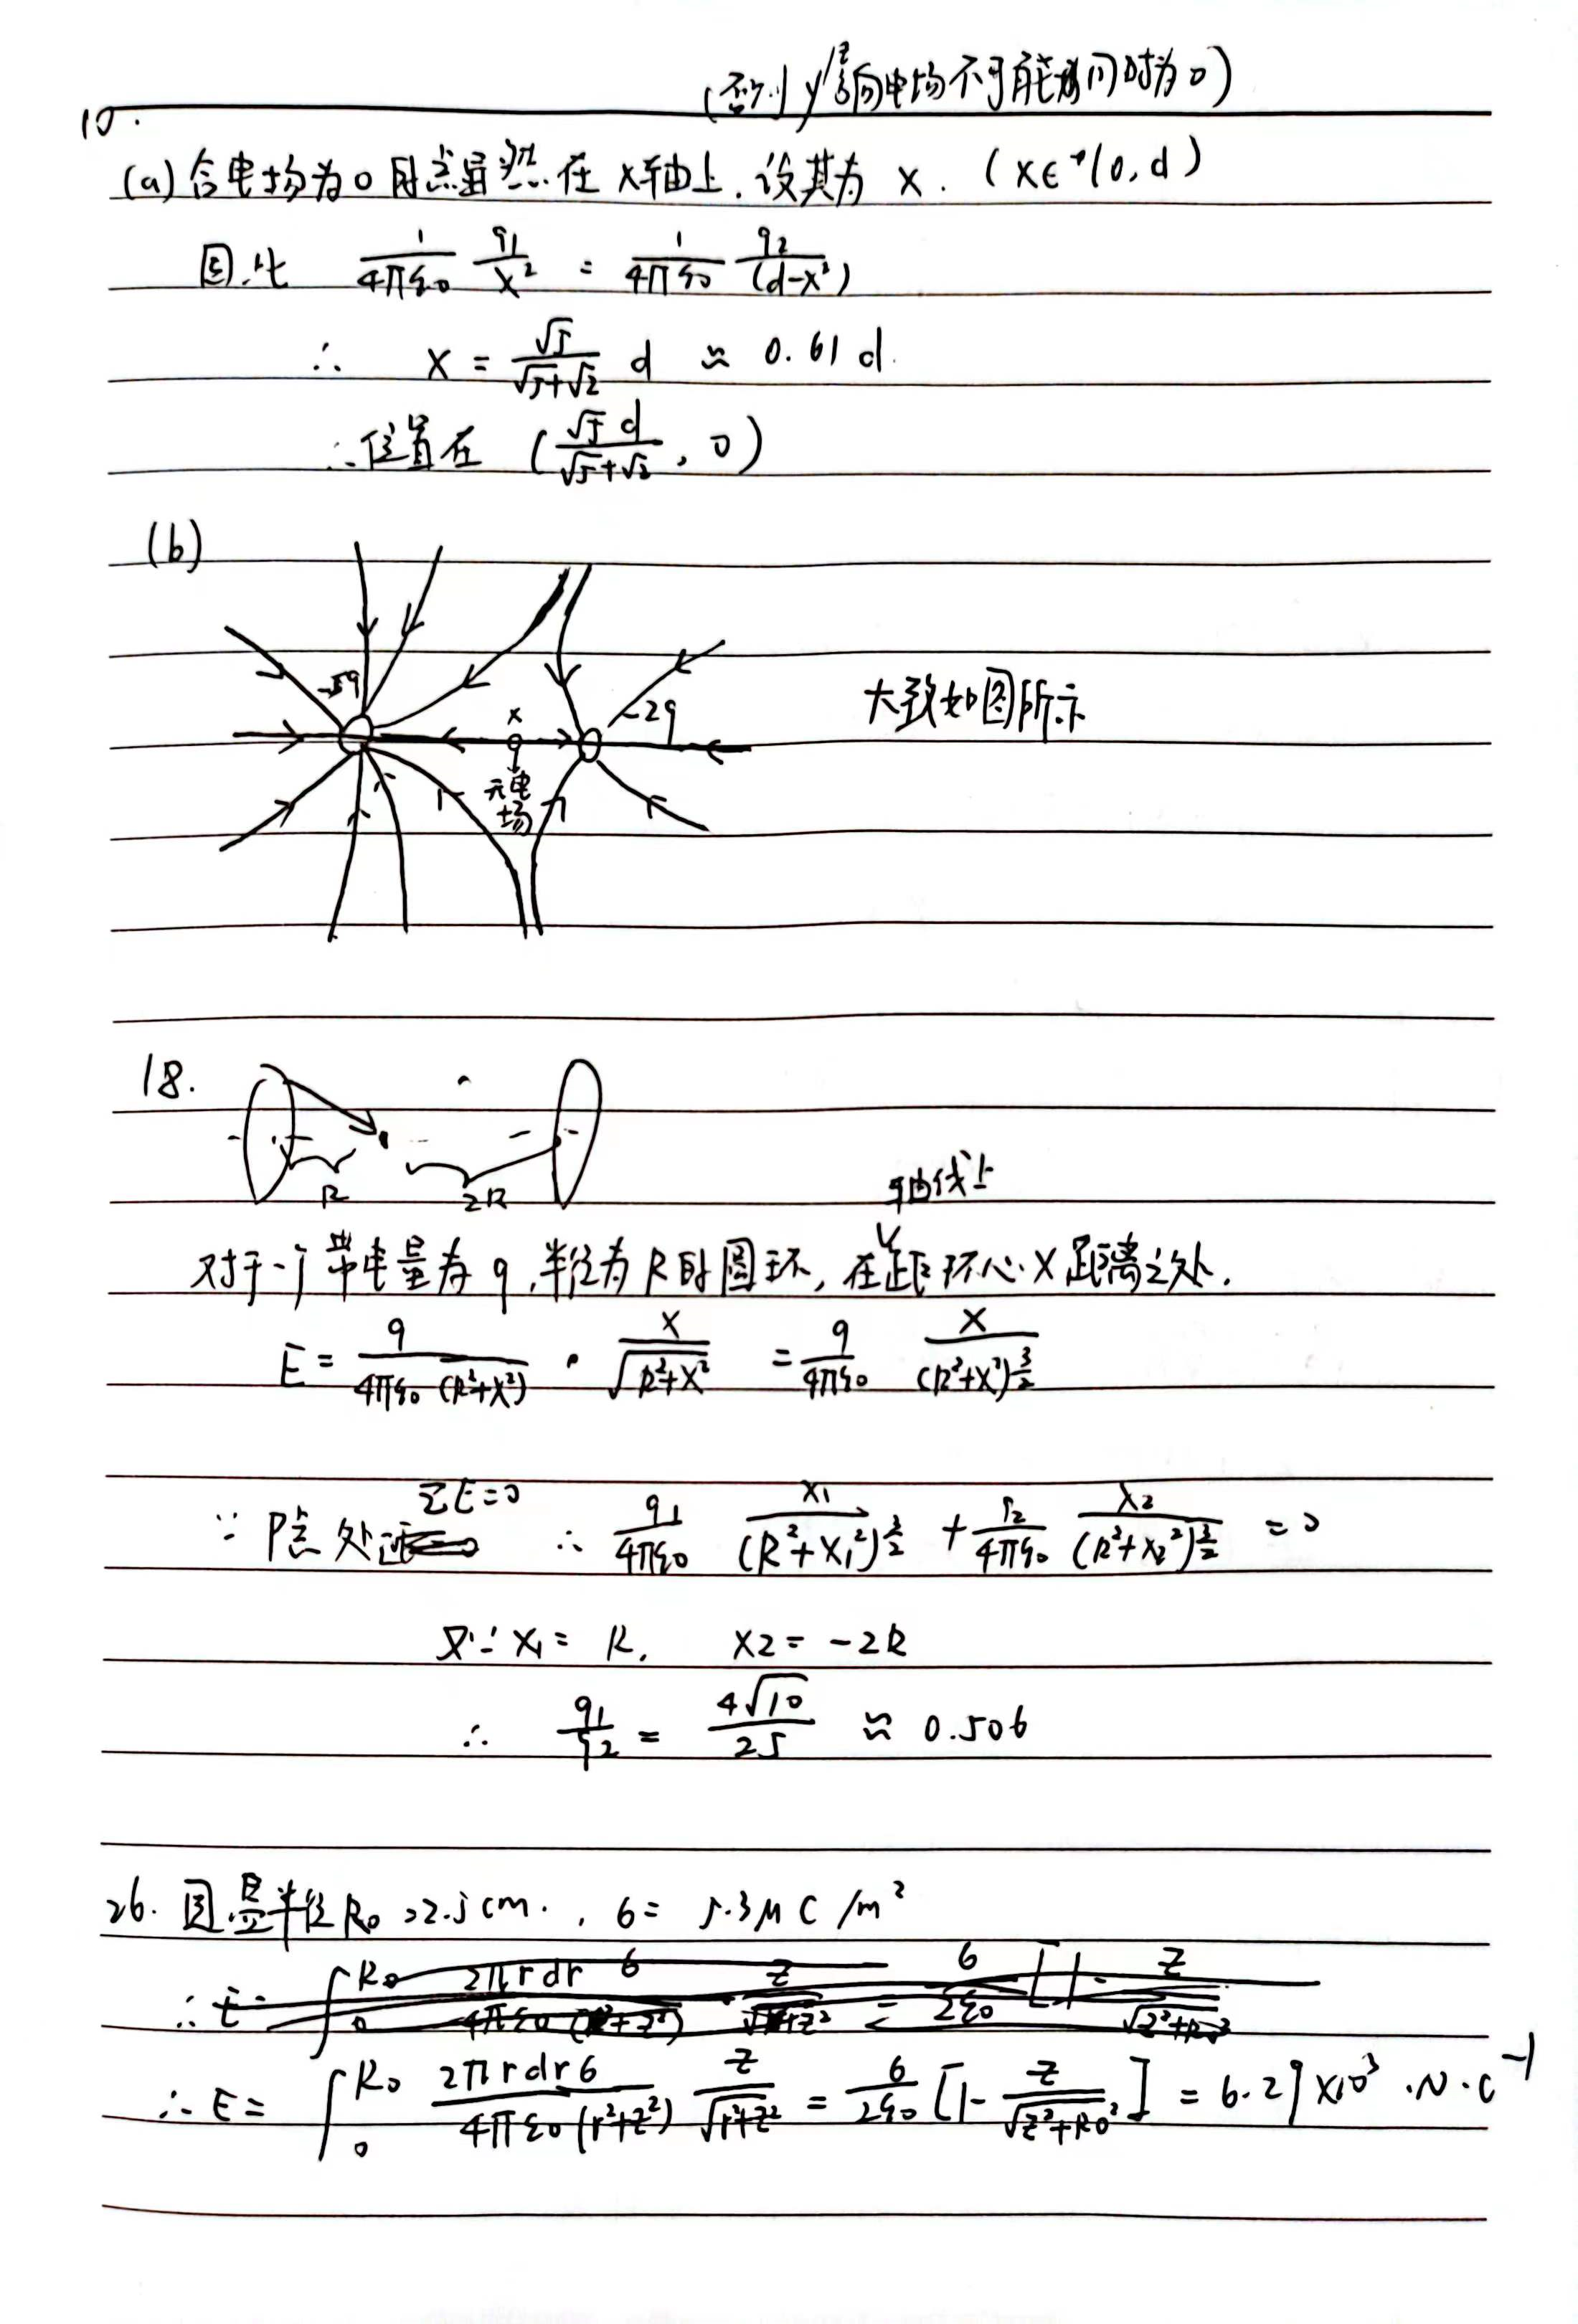 (否则y方向电场不可能同时为0)
10.
(a) 合电场为0的点显然在x轴上.设其为x. (x∈(0,d)
因此 \frac{1}{4πε0} \frac{q1}{x^2} = \frac{1}{4πε0} \frac{q2}{(d-x^2)}
∴ x = \frac{√5}{√5+√2} d ≈ 0.61 d.
∴位置在 (\frac{√5 d}{√5+√2}, 0)
(b)
-5q
x
-2q
大致如图所示
无电
场
18.
R
2R
轴线上
对于一个带电量为q,半径为R的圆环,在距环心x距离之处.
E = \frac{q}{4πε0 (R^2+x^2)} · \frac{x}{\sqrt{R^2+x^2}} = \frac{q}{4πε0} \frac{x}{(R^2+x^2)^{\frac{3}{2}}}
ΣE=0
∵ P点处 ∴ \frac{q1}{4πε0} \frac{x1}{(R^2+x1^2)^{\frac{3}{2}}} + \frac{q2}{4πε0} \frac{x2}{(R^2+x2^2)^{\frac{3}{2}}} = 0
又∵ x1 = R, x2 = -2R
∴ \frac{q1}{q2} = \frac{4√10}{25} ≈ 0.506
26. 圆盘半径R0=2.5cm., σ= 5.3μC/m^2
∴ E= \int_0^{R0} \frac{2πrdrσ}{4πε0(r^2+z^2)} \frac{z}{\sqrt{r^2+z^2}} = \frac{σ}{2ε0} [1-\frac{z}{\sqrt{z^2+R0^2}}] = 6.29 ×10^3 ·N·C^{-1}